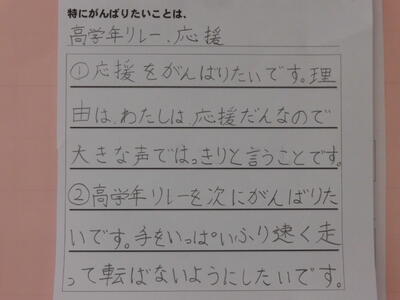 特にがんばりたいことは、
高学年リレー、応援
①応援をがんばりたいです。理
由は、わたしは、応援だんなので
大きな声ではっきりと言うことです。
②高学年リレーを次にがんばりた
いです。手をいっぱいふり速く走
って転ばないようにしたいです。